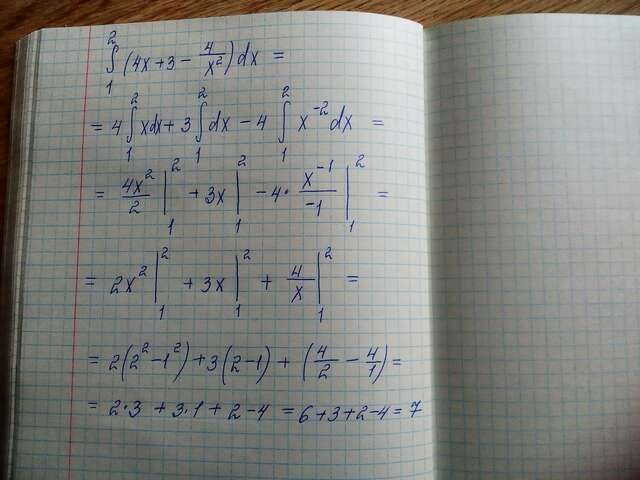 ∫₁² (4x + 3 − 4/x²) dx =
= 4 ∫₁² xdx + 3 ∫₁² dx − 4 ∫₁² x⁻² dx =
= 4x²/2 |₁² + 3x |₁² − 4 · x⁻¹/−1 |₁² =
= 2x² |₁² + 3x |₁² + 4/x |₁² =
= 2(2² − 1²) + 3(2 − 1) + (4/2 − 4/1) =
= 2·3 + 3·1 + 2 − 4 = 6 + 3 + 2 − 4 = 7